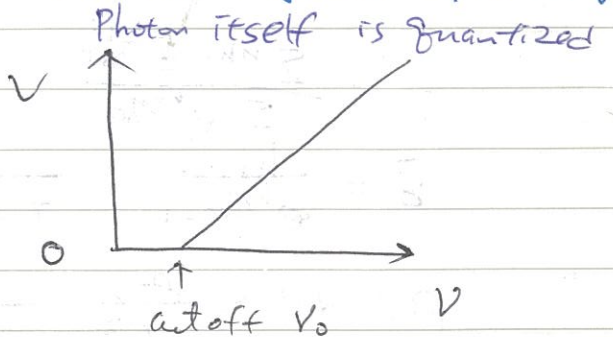 Photon itself is quantized
V
0
cutoff ν₀
ν